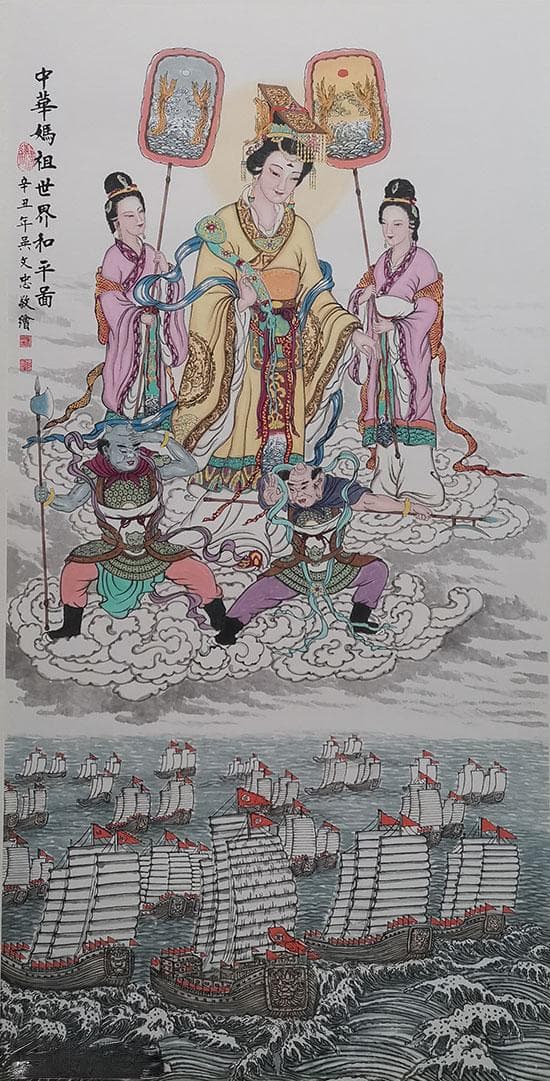 中華媽祖世界和平圖
辛丑年吴文忠敬繪